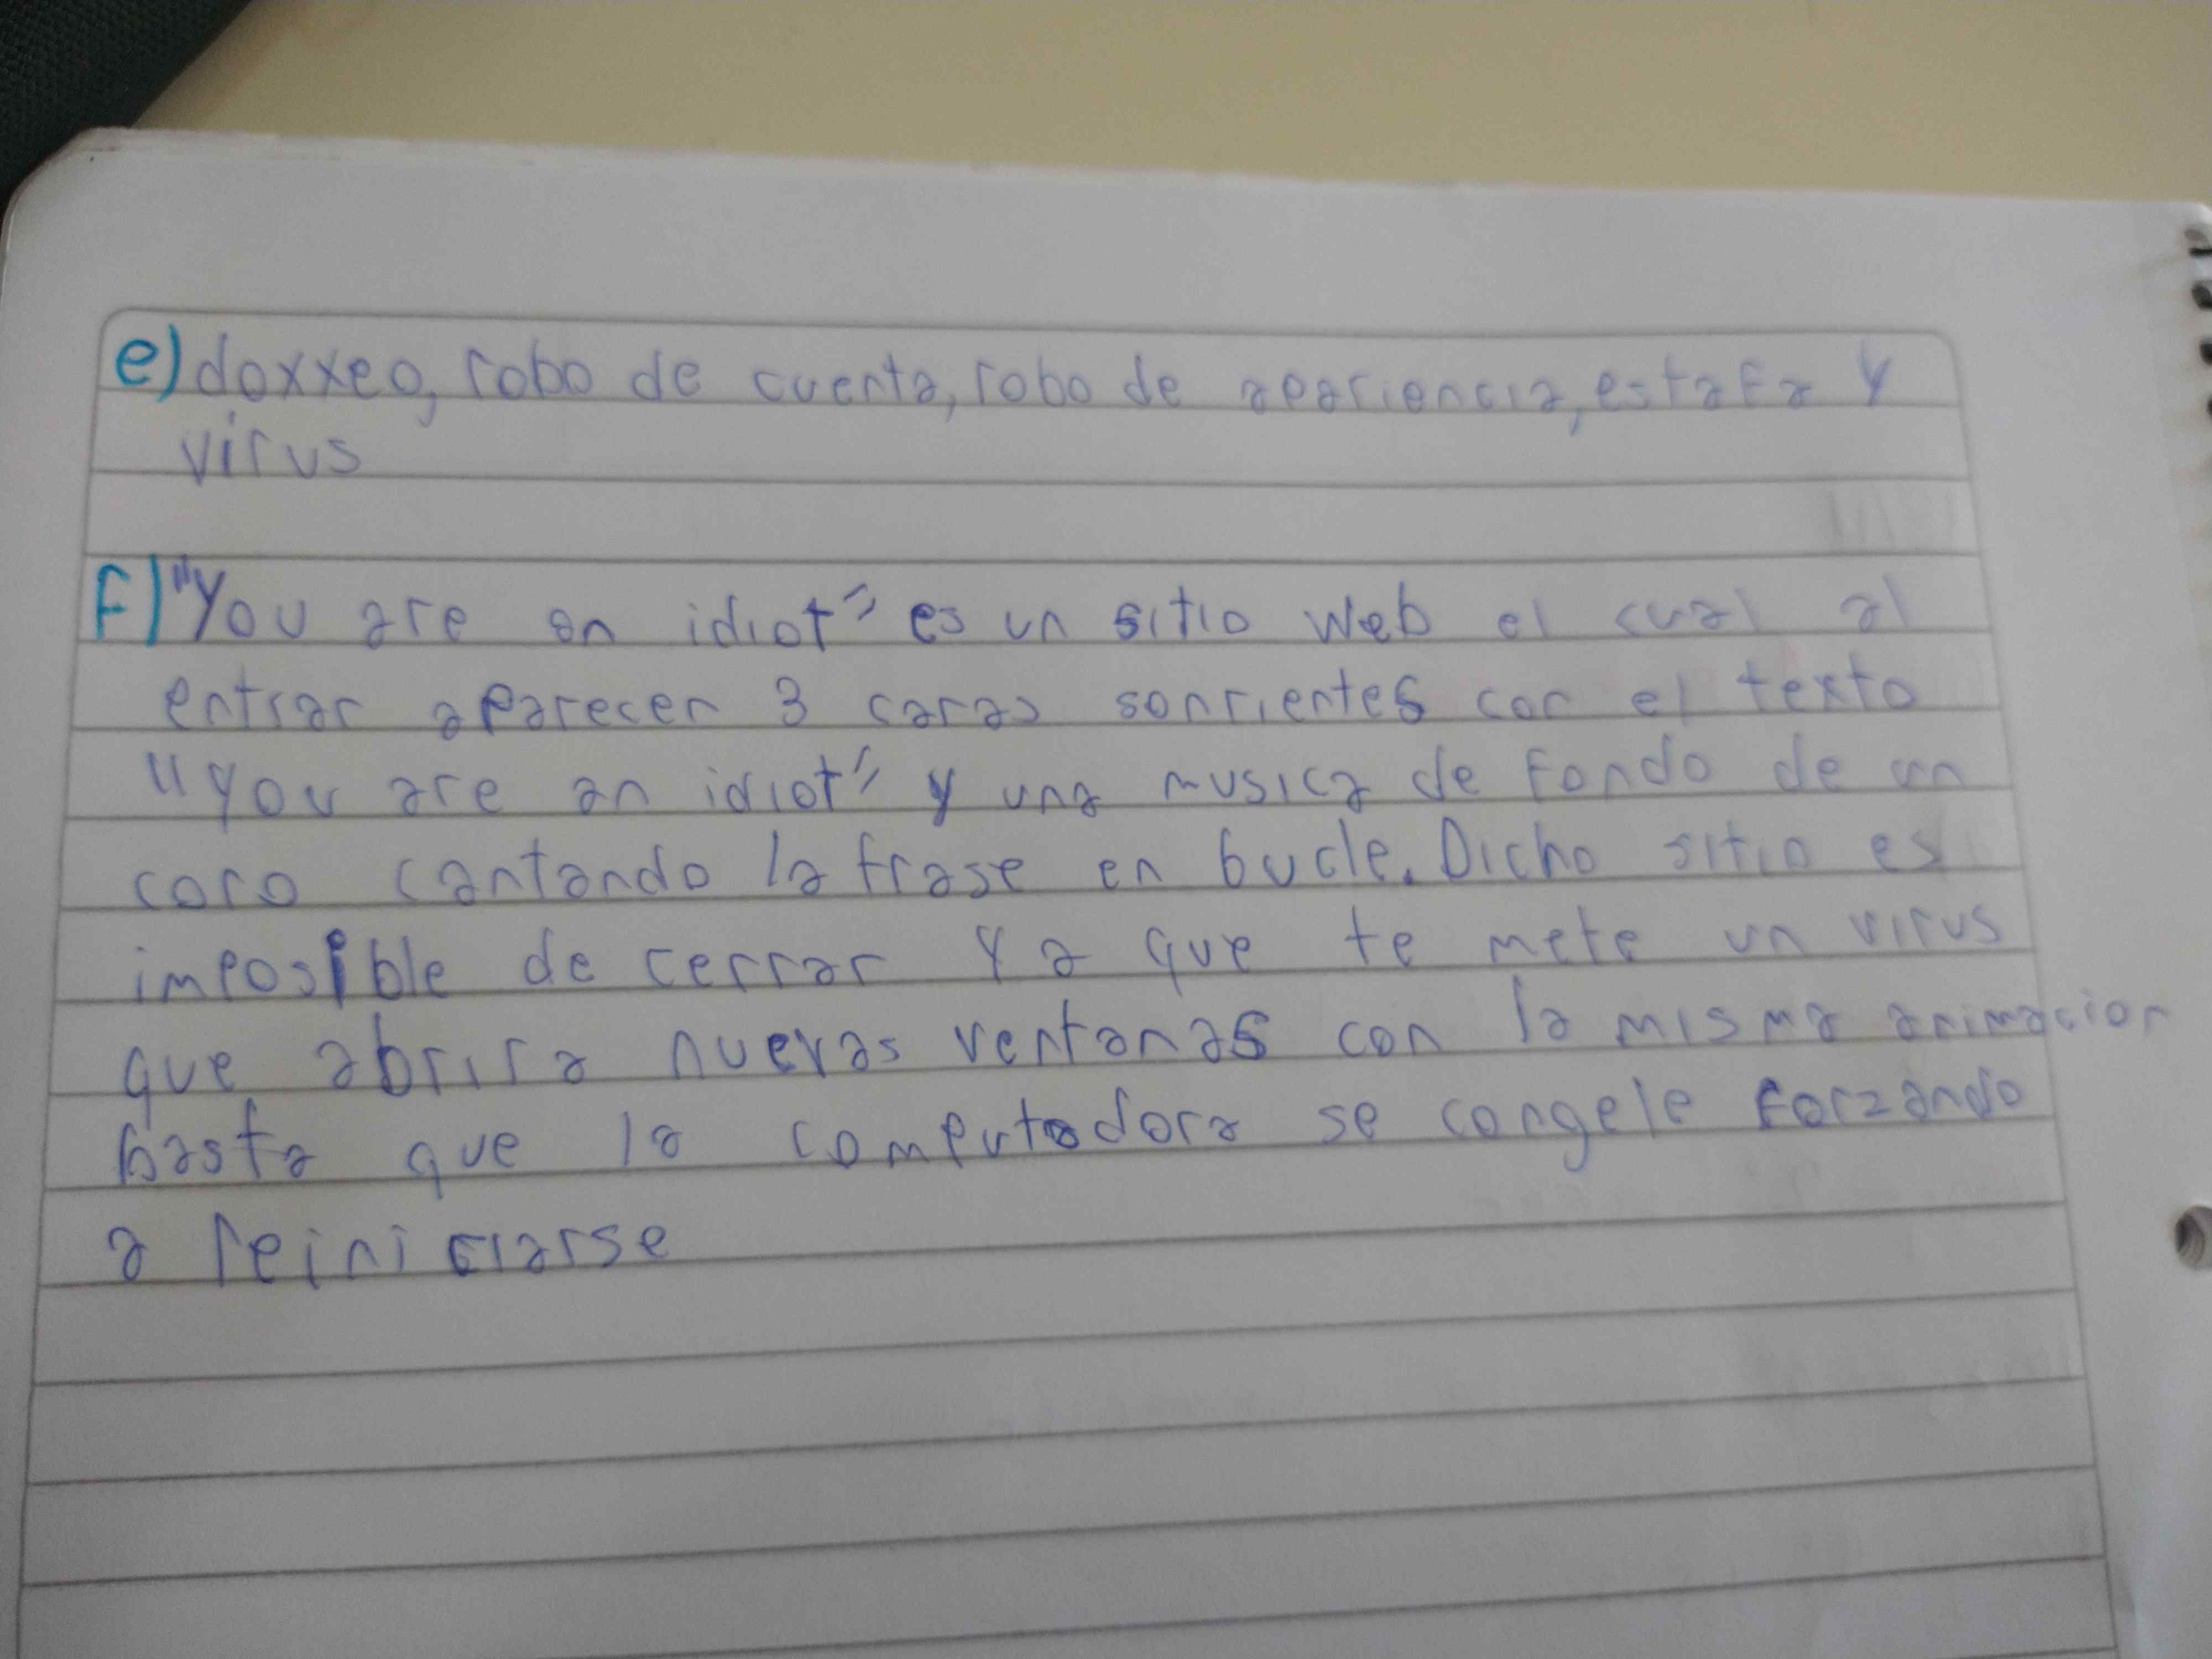 e) doxxeo, robo de cuenta, robo de apariencia, estafa y
virus
F) "You are an idiot" es un sitio web el cual al
entrar aparecen 3 caras sonrientes con el texto
"you are an idiot" y una musica de fondo de un
coro cantando la frase en bucle. Dicho sitio es
imposible de cerrar ya que te mete un virus
que abrira nuevas ventanas con la misma animacion
hasta que la computadora se congele forzando
a reiniciarse